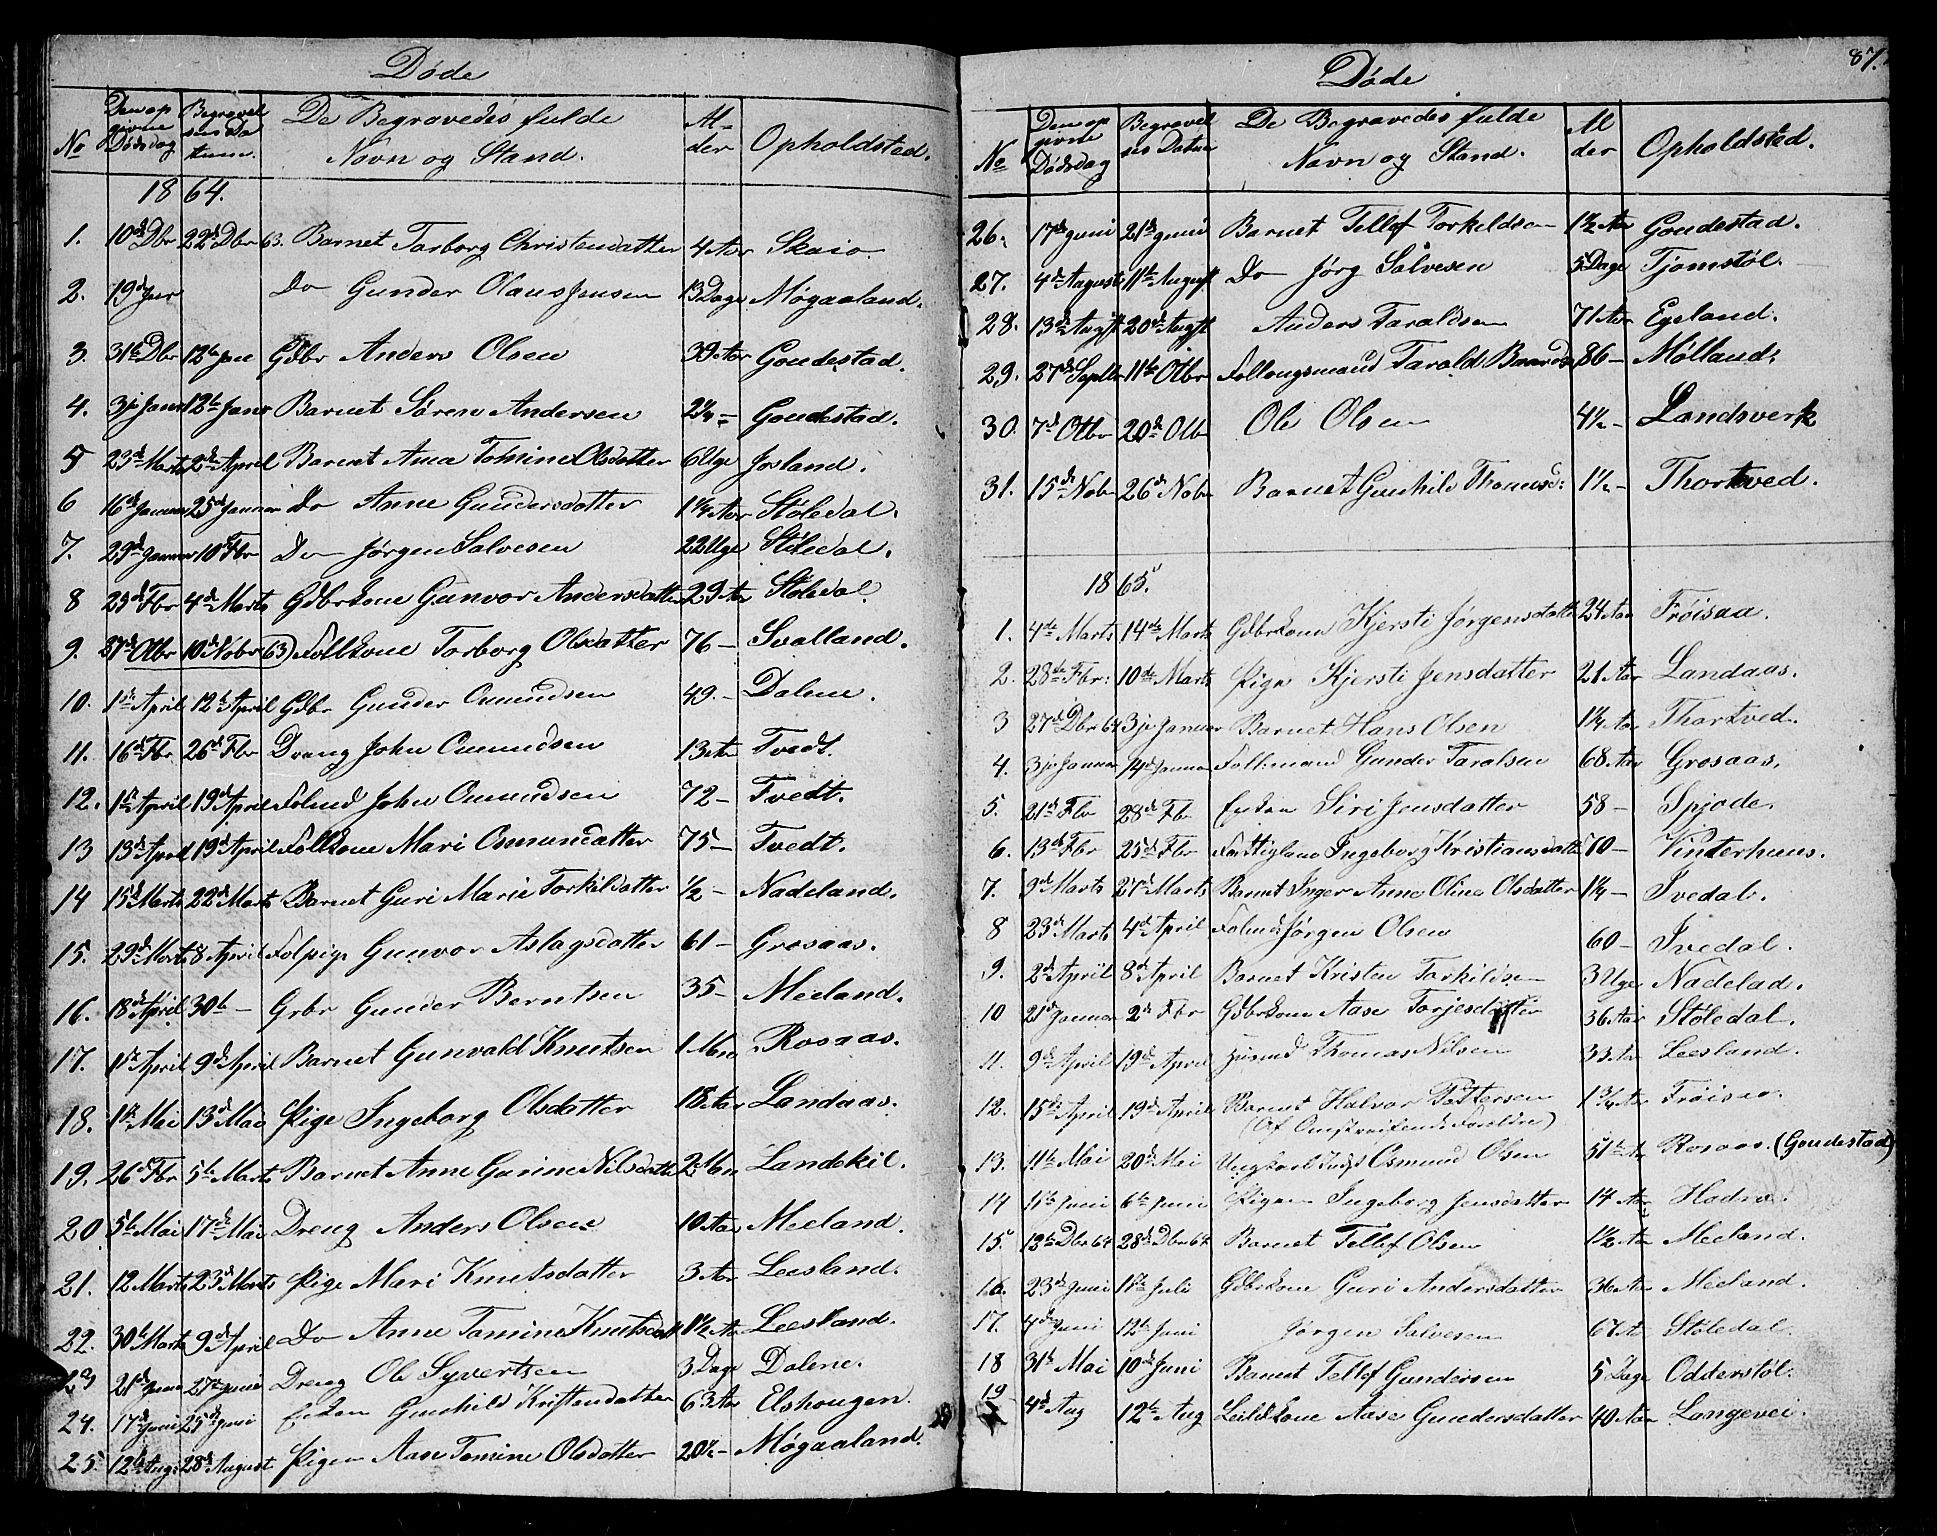 Døde
No | Den opgivne Dødsdag | Begravelses Datum. | De Begravedes fulde Navn og Stand. | Alder | Opholdsted.
1864.
1. 10de Dbr 22de Dbr 63. Barnet Torborg Christensdatter 4 Aar Skaio
2. 19de Jar Do Gunder Olaus Jensen 13 Dage Møgaaland.
3. 31te Dbr 12te Jan Gdbr Anders Olsen 39 Aar Goudestad.
4. 3je Janr 12te Janr Barnet Søren Andersen 2¼ – Goudestad.
5 23de Marts 2de April Barnet Ama Tomine Olsdatter 6 Uge Josland.
6 16de Januar 25de Januar Do Anne Gundersdatter 1¼ Aar Støledal.
7. 29de Januar 10de Fbr Do Jørgen Salvesen 22 Uge Støledal.
8 25de Fbr 4de Marts Gdbrkone Gunvor Andersdatter 29 Aar Støledal.
9. 27de Otbr 10de Nobr (63) Follkone Torborg Olsdatter 76 – Svalland.
10. 1ste April 12te April Gdbr Gunder Osmundsen 49 – Dalene.
11. 16de Fbr 26de Fbr Dreng John Osmundsen 13 Aar Tvedt.
12. 1ste April 19de April Folmd John Osmundsen 72 – Tvedt.
13 13de April 19de April Follkone Mari Osmundatter 75 – Tvedt.
14 15de Marts 22de Marts Barnet Guri Marie Torkildatter ½ – Nadeland.
15. 29de Marts 8 April Folpige Gunvor Aslagsdatter 61 – Grosaas.
16. 18de April 30te – Grbr Gunder Berntsen 35 – Meeland.
17. 1ste April 9de April Barnet Gunvald Knutsen 1 Mdn Rosaas.
18. 1ste Mai 13de Mai Pige Ingeborg Olsdatter 18 Aar Landaas.
19. 26de Fbr 5te Marts Barnet Anne Gurine Nilsdatter 2 Mdn Landskil.
20. 5te Mai 17de Mai Dreng Anders Olsen 10 Aar Meeland.
21. 12 Marts 23de Marts Pige Mari Knutsdatter 3 Aar Leesland.
22. 30te Marts 9de April Do Anne Tomine Knutsdatt 1½ Aar Leesland.
23 21de Juni 27de Juni Dreng Ole Syvertsen 3 Dage Dalene.
24. 17de Juni 25de Juni Enken Gunhild Kristensdatter 63 Aar Elshougen.
25. 12te Aug. 28de August Pigen Aase Tomine Olsdatter 20½ – Møgaaland.
87.
Døde
No | Den opgivne Dødsdag | Begravelses Datum | De Begravedes fulde Navn og Stand. | Alder | Opholdsted.
26. 17de Juni 21de Juni Barnet Tellef Torkildsen 1½ Aar Goudestad.
27. 4de August 11te August Do Jørg Salvesen 5 Dage Tjomstøl.
28. 13de Augst 20de Augst Anders Taraldsen 71 Aar Egeland.
29. 27de Septbr 11te Otbr Follougsmand Tarald 86 – Mølland.
30. 7de Otbr 20de Otbr Ole Olsen 4½ – Landsverk
31. 15de Nobr 26de Nobr Barnet Gunhild Thomasd: 1½ – Thortved.
1865.
1. 4de Marts 14de Marts Gdbrkone Kjersti Jørgensdatte 24 Aar Frøisaa.
2. 28de Fbr: 10de Marts Pige Kjersti Jensdatter 21 Aar Landaas.
3 27de Dbr 64 3je Januar Barnet Hans Olsen 1¼ Aar Thortved.
4. 3je Januar 14de Januar Follmand Gunder Taralsen 68 Aar Grosaas.
5. 21de Fbr 28de Fbr Enken Siri Jensdatter 58 – Spjode.
6. 13de Fbr 25de Fbr Fattiglem Ingeborg Kristiansdatte 70 – Vinterhuus.
7. 9de Marts 27de Marts Barnet Inger Anne Olina Olsdatter 1¼ – Ivedal.
8 23de Marts 4de April Folmd Jørgen Olsen 60 – Ivedal.
9. 2de April 8de April Barnet Kristen Torkildsen 3 Uge Nadelad.
10 21de Januar 2de Fbr Gdbrkone Aase Torjesdatter 36 Aar Støledal.
11. 9de April 19de April Husmd Thomas Nilsen 33 Aar Leesland.
12. 15de April 19de April Barnet Halvor Pettersen 1¾ Aar Frøisaa.
(Af Omstreifende Foreldre)
13. 11te Mai 20de Mai Ungkarl Inds Osmund Olsen 51 Aar Rosaas. (Goudestad)
14 1ste Juni 6te Juni Pigen Ingeborg Jensdatter 14 Aar
15. 13de Dbr 64 28de Dbr 64 Barnet Tellef Olsen 1½ Aar Meeland.
16. 23de Juni 1ste Juli Gdbrkone Guri Andersdatter 36 Aar Meeland.
17. 4de Juni 12te Juni Jørgen Salvesen 67 A Støledal.
18 31te Mai 10de Juni Barnet Tellef Gundersen 5 Dage Odderstøl.
19 4de Aug 12te Aug Leildkone Aase Gundersdatter 40 Aar Langevei.